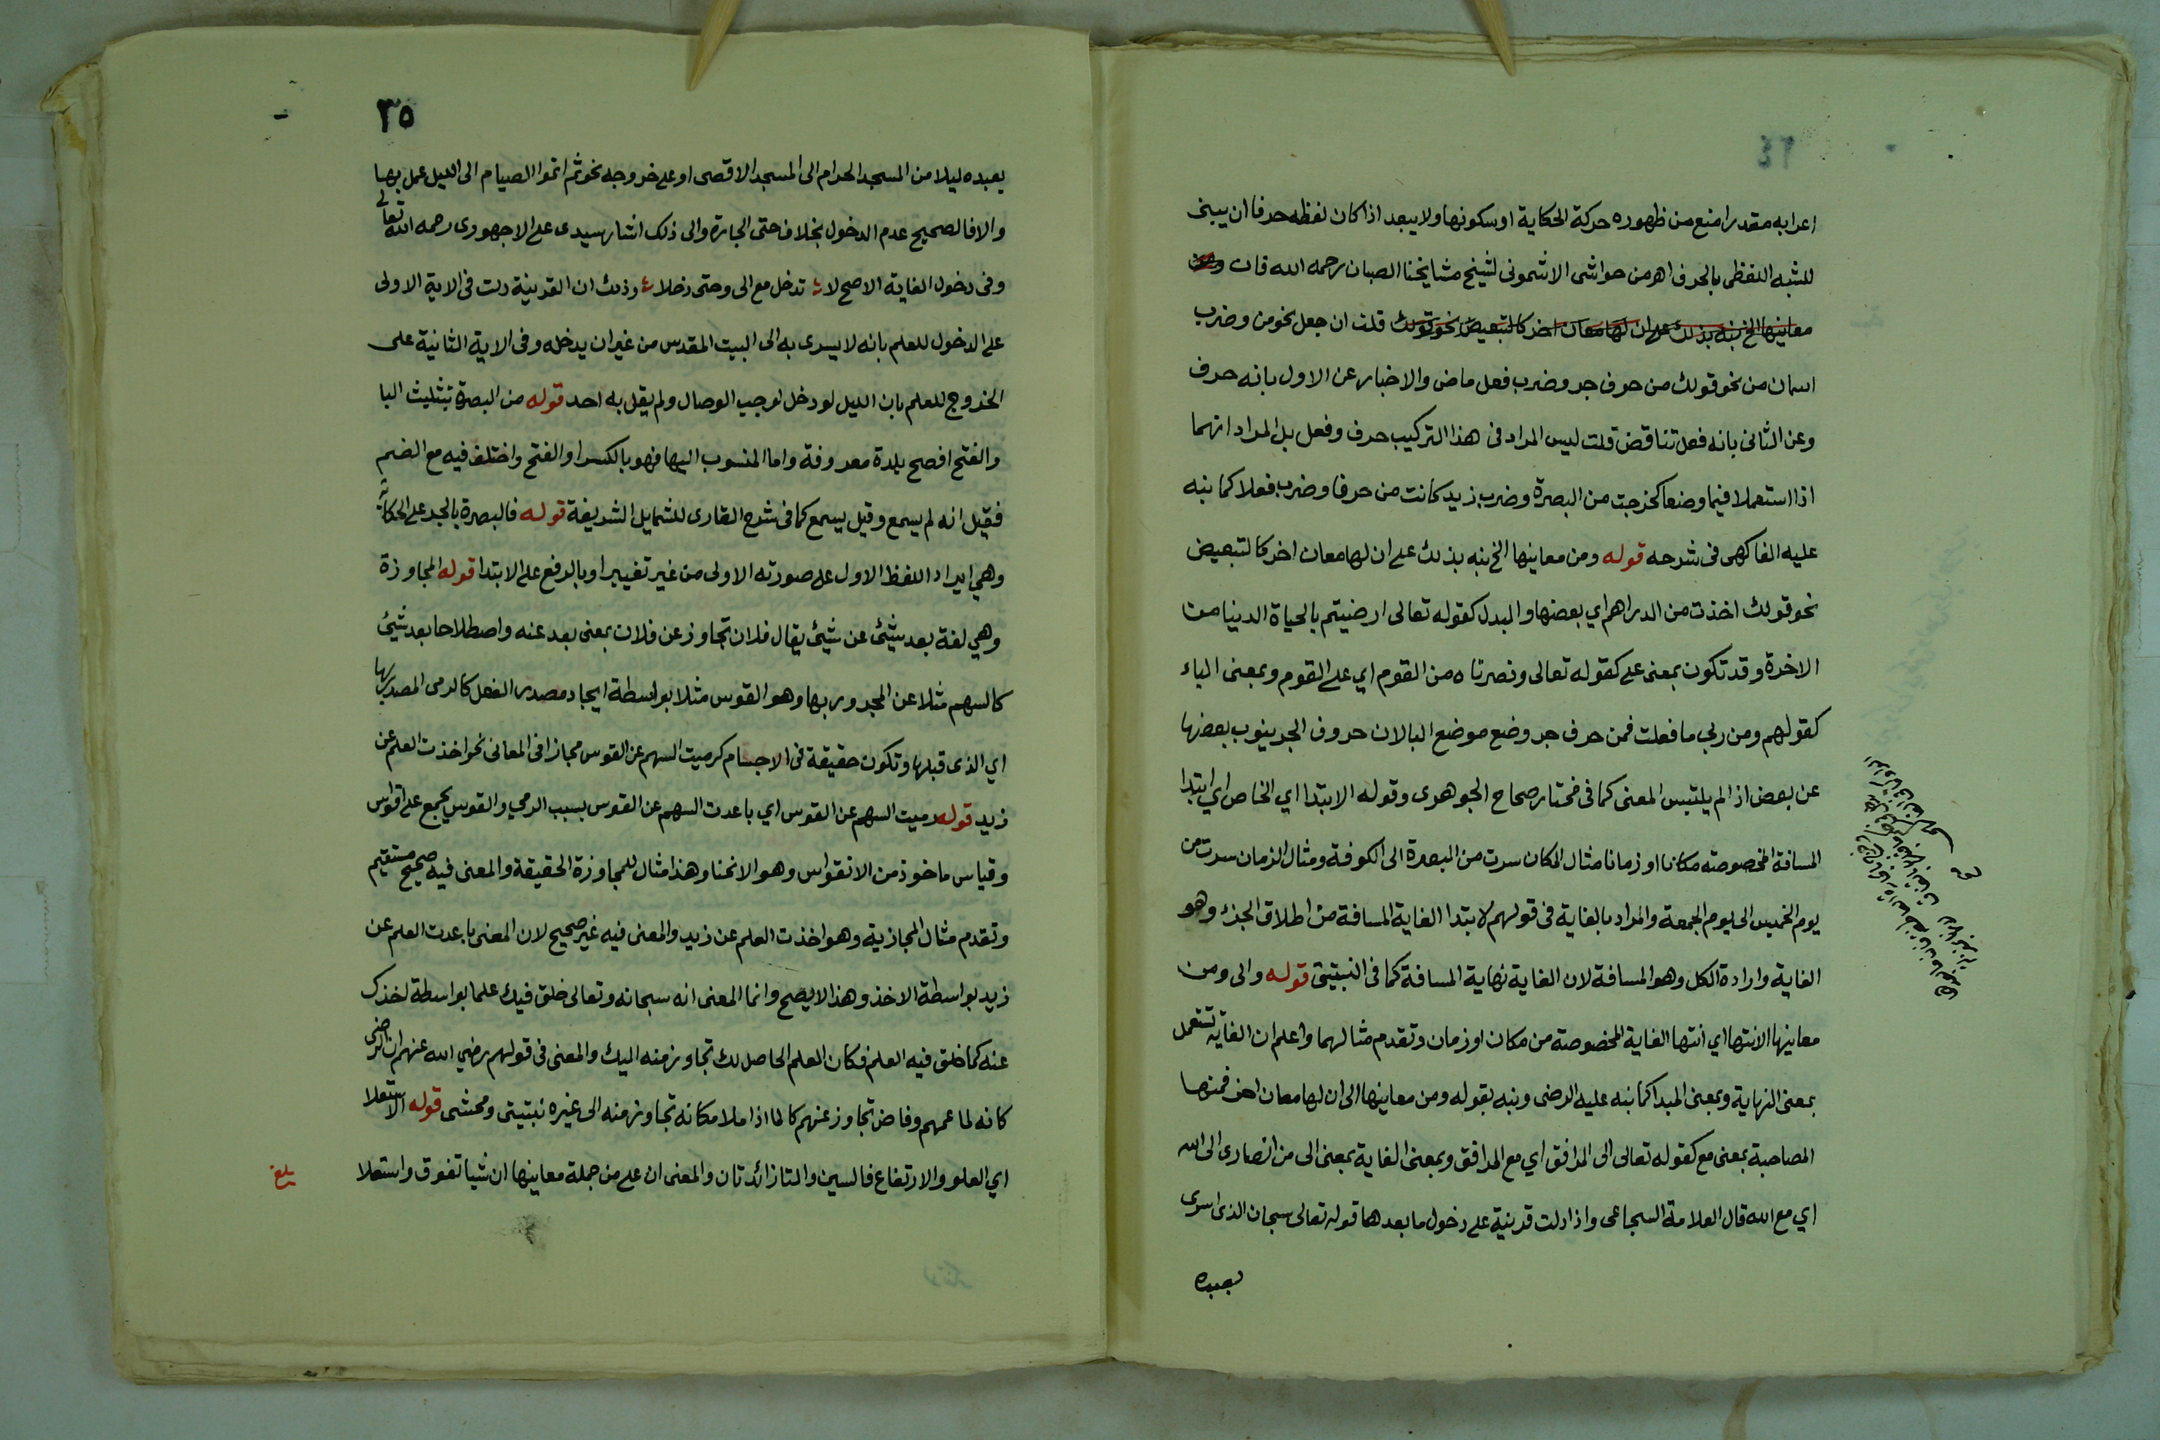 اعرابه مقدرا منع من ظهوره حركة الحكاية او سكونها ولا يبعد اذا كان لفظه حرفا ان يبنى
للشبه اللفظى بالحرف اهـ من حواشى الاشمونى لشيخ مشايخنا الصبان رحمه الله فان ومن
معانيها الخ نبه بذلك على ان لها معان اخر كالتبعيض نحو قولك قلت ان جعل نحو من وضرب
اسمان من نحو قولك من حرف جر وضرب فعل ماض والاخبار عن الاول بانه حرف
وعن الثانى بانه فعل تناقض قلت ليس المراد فى هذا التركيب حرف وفعل بل المراد انهما
اذا استعملا فيما وضعا كخرجت من البصرة وضرب زيد كانت من حرفا وضرب فعلا كما نبه
عليه الفاكهى فى شرحه قوله ومن معانيها الخ نبه بذلك على ان لها معان اخر كالتبعيض
نحو قولك اخذت من الدراهم اي بعضها والبدل كقوله تعالى ارضيتم بالحياة الدنيا من
الاخرة وقد تكون بمعنى على كقوله تعالى ونصرناه من القوم اي على القوم وبمعنى الباء
كقولهم ومن ربي ما فعلت فمن حرف جر وضع موضع البا لان حروف الجر ينوب بعضها
عن بعض اذا لم يلتبس المعنى كما فى مختار صحاح الجوهرى وقوله الابتدا اي الخاص اي ابتدا
المسافة المخصوصة مكانا او زمانا مثال المكان سرت من البصرة الى الكوفة ومثال الزمان سرت من
يوم الخميس الى يوم الجمعة والمراد بالغاية فى قولهم لابتدا الغاية المسافة من اطلاق الجزء وهو
الغاية وارادة الكل وهو المسافة لان الغاية نهاية المسافة كما فى النبتيتى قوله والى ومن
معانيها الانتها اي انتها الغاية المخصوصة من مكان او زمان وتقدم مثالهما واعلم ان الغاية تستعمل
بمعنى النهاية وبمعنى المبدا كما نبه عليه الرضى ونبه بقوله ومن معانيها الى ان لها معان اخر فمنها
المصاحبة بمعنى مع كقوله تعالى الى المرافق اي مع المرافق وبمعنى الغاية بمعنى الى من انصارى الى الله
اي مع الله قال العلامة السجاعى واذا دلت قرينة على دخول ما بعدها قوله تعالى سبحان الذى اسرى
بعبده
٣٥
بعبده ليلا من المسجد الحرام الى المسجد الاقصى او على خروجه نحو ثم اتموا الصيام الى الليل عمل بها
والا فالصحيح عدم الدخول بخلاف حتى الجارة والى ذلك اشار سيدى على الاجهورى رحمه الله تعالى
وفى دخول الغاية الاصح لا ؛ تدخل مع الى وحتى دخلا ؛ وذلك ان القرينة دلت فى الاية الاولى
على الدخول للعلم بانه لا يسرى به الى البيت المقدس من غير ان يدخله وفى الاية الثانية على
الخروج للعلم بان الليل لو دخل لوجب الوصال ولم يقل به احد قوله من البصرة بتثليث البا
والفتح افصح بلدة معروفة واما المنسوب اليها فهو بالكسر او الفتح واختلف فيه مع الضم
فقيل انه لم يسمع وقيل يسمع كما فى شرح القارى للشمايل الشريفة قوله فالبصرة بالجر على الحكاية
وهي ايراد اللفظ الاول على صورته الاولى من غير تغيير او بالرفع على الابتدا قوله المجاوزة
وهي لغة بعد شيئ عن شيئ يقال فلان تجاوز عن فلان بمعنى بعد عنه واصطلاحا بعد شيئ
كالسهم مثلا عن المجرور بها وهو القوس مثلا بواسطة ايجاد مصدر الفعل كالرمى المصدر بها
اي الذى قبلها وتكون حقيقة فى الاجسام كرميت السهم عن القوس مجازا فى المعانى نحو اخذت العلم عن
زيد قوله رميت السهم عن القوس اي باعدت السهم عن القوس بسبب الرمي والقوس يجمع على اقواس
وقياس ماخوذ من الانقواس وهو الانحنا وهذا مثال للمجاوزة الحقيقة والمعنى فيه صحيح مستقيم
وتقدم مثال المجازية وهو اخذت العلم عن زيد والمعنى فيه غير صحيح لان المعنى باعدت العلم عن
زيد بواسطة الاخذ وهذا لا يصح وانما المعنى انه سبحانه وتعالى خلق فيك علما بواسطة اخذك
عنه كما خلق فيه العلم فكان العلم الحاصل لك تجاوز منه اليك والمعنى فى قولهم رضي الله عنهم ان الرضى
كانه لما عمهم وفاض تجاوز عنهم كالما اذا ملا مكانه تجاوز منه الى غيره نبتيتى ومحشى قوله الاستعلا
اي العلو والارتفاع فالسين والتا زائدتان والمعنى ان على من جملة معانيها ان شيا تفوق واستعلا
بلغ